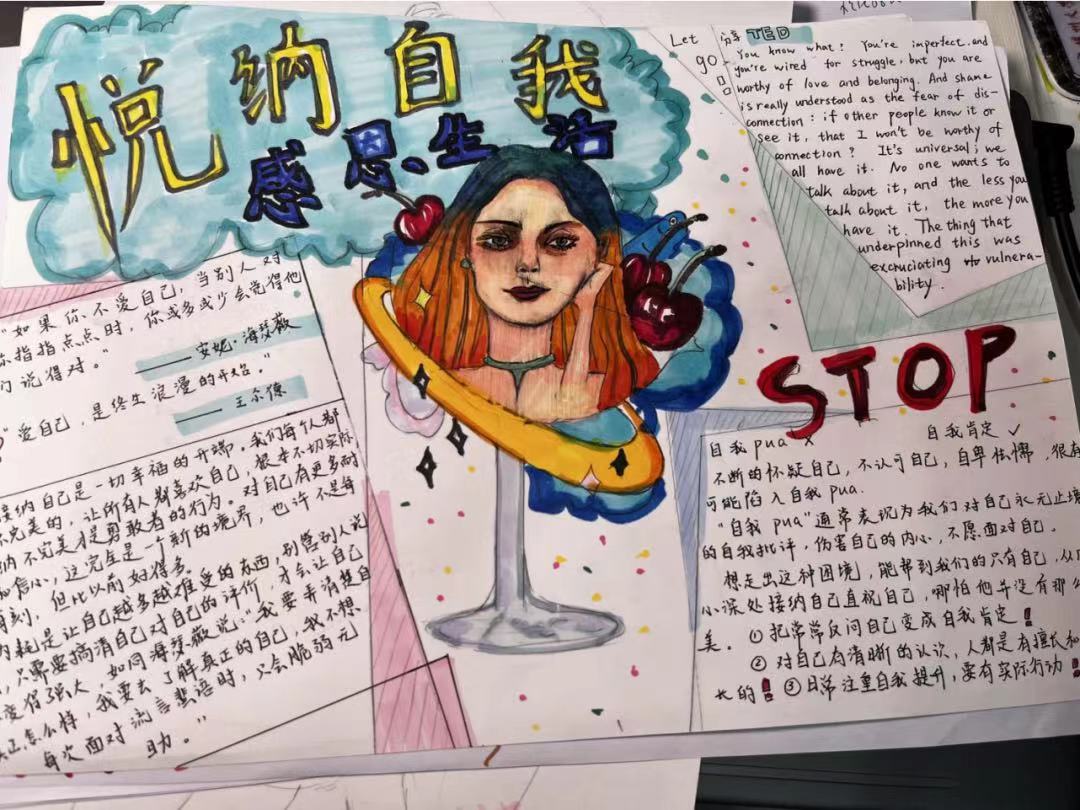 悦纳自我
感恩生活
Let
go
分享 TED
You know what! You're imperfect.and
you're wired for struggle, but you are
worthy of love and belonging. And shame
is really understood as the fear of dis-
connection : if other people know it or
see it, that I won't be worthy of
connection? It's universal; we
all have it. No one wants to
talk about it, and the less you
talk about it, the more you
have it. The thing that
underpinned this was
excruciating vulnera-
bility.
"如果你不爱自己,当别人对
你指指点点时,你或多或少会觉得他
们说得对。"
——安妮·海瑟薇
"爱自己,是终生浪漫的开始。"
——王尔德
接纳自己是一切幸福的开端。我们每个人都
不完美的,让所有人都喜欢自己,根本不切实际
纳不完美才是勇敢者的行为。对自己有更多耐
和信心,这完全是一个新的境界,也许不是每
时刻,但比以前好得多。
内耗是让自己越多越难受的东西,别管别人说
,只需要搞清自己对自己的评价,才会让自己
变得强大,如同海瑟薇说:"我要弄清楚自
己怎么样,我要去了解真正的自己,我不想
每次面对流言蜚语时,只会脆弱无
助。"
STOP
自我pua ×
自我肯定 ✓
不断的怀疑自己,不认可自己,自卑怯懦,很有
可能陷入自我pua.
"自我pua"通常表现为我们对自己永无止境
的自我批评,伤害自己的内心,不愿面对自己.
想走出这种困境,能帮到我们的只有自己,从内
心深处接纳自己直视自己,哪怕他并没有那么
美。①把常常反问自己变成自我肯定!
②对自己有清晰的认识,人都是有擅长和
长的!③日常注重自我提升,要有实际行动!